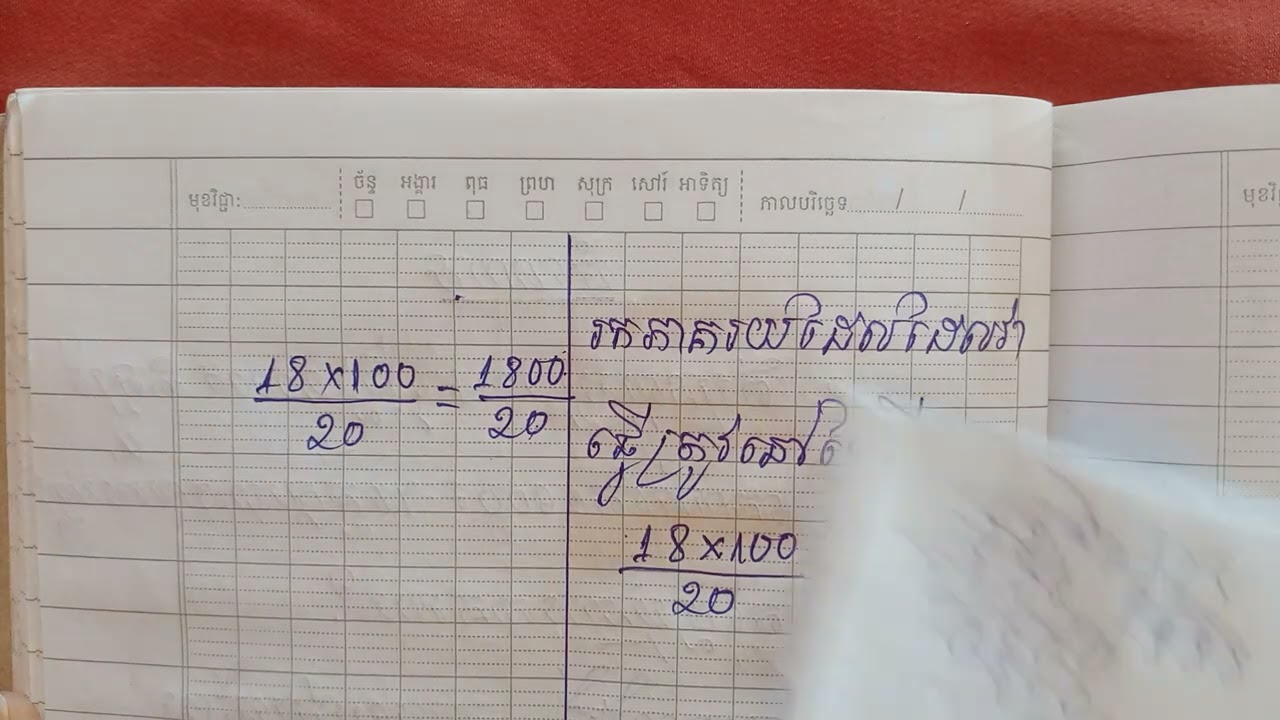 មុខវិជ្ជា:
ច័ន្ទ អង្គារ ពុធ ព្រហ សុក្រ សៅរ៍ អាទិត្យ
កាលបរិច្ឆេទ / /
18×100 = 1800
20 20
រកភាគរយដែលដែលវា
ធ្វើត្រូវនៅ
18×100
20